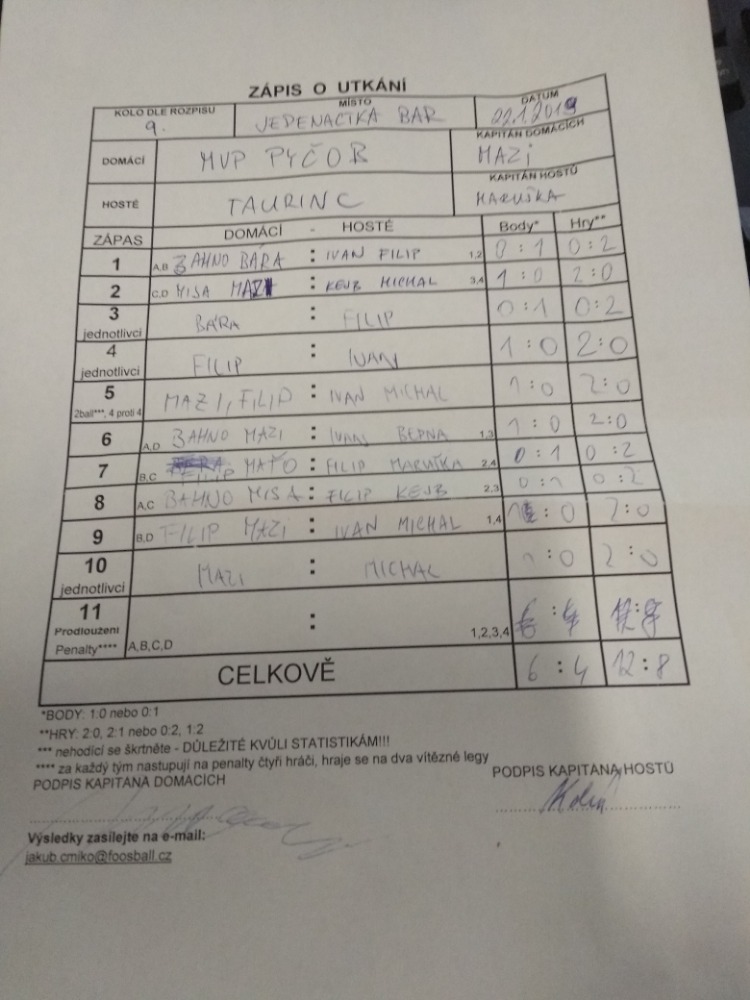 ZÁPIS O UTKÁNÍ
KOLO DLE ROZPISU MÍSTO DATUM
9. JEDENÁCTKA BAR 22.1.2019
DOMÁCÍ MVP PYČOB KAPITÁN DOMÁCÍCH MAZI
HOSTÉ TAURINC KAPITÁN HOSTŮ MARUŠKA
ZÁPAS DOMÁCÍ - HOSTÉ Body* Hry**
1 A,B BAHNO BÁRA : IVAN FILIP 1,2 0:1 0:2
2 C,D MISA MAZI : KEJB MICHAL 3,4 1:0 2:0
3 jednotlivci BÁRA : FILIP 0:1 0:2
4 jednotlivci FILIP : IVAN 1:0 2:0
5 2ball***, 4 proti 4 MAZI, FILIP : IVAN MICHAL 1:0 2:0
6 A,D BAHNO MAZI : IVAN 1,3 1:0 2:0
7 B,C FILIP MAŤO : FILIP MARUŠKA 2,4 0:1 0:2
8 A,C BAHNO MISA : FILIP KEJB 2,3 0:1 0:2
9 B,D FILIP MAZI : IVAN MICHAL 1,4 1:0 2:0
10 jednotlivci MAZI : MICHAL 1:0 2:0
11 Prodloužení Penalty**** A,B,C,D : 1,2,3,4
CELKOVĚ 6:4 12:8
*BODY: 1:0 nebo 0:1
**HRY: 2:0, 2:1 nebo 0:2, 1:2
*** nehodící se škrtněte - DŮLEŽITÉ KVŮLI STATISTIKÁM!!!
**** za každý tým nastupují na penalty čtyři hráči, hraje se na dva vítězné legy
PODPIS KAPITÁNA DOMÁCÍCH PODPIS KAPITÁNA HOSTŮ
Výsledky zasílejte na e-mail:
jakub.cmiko@foosball.cz